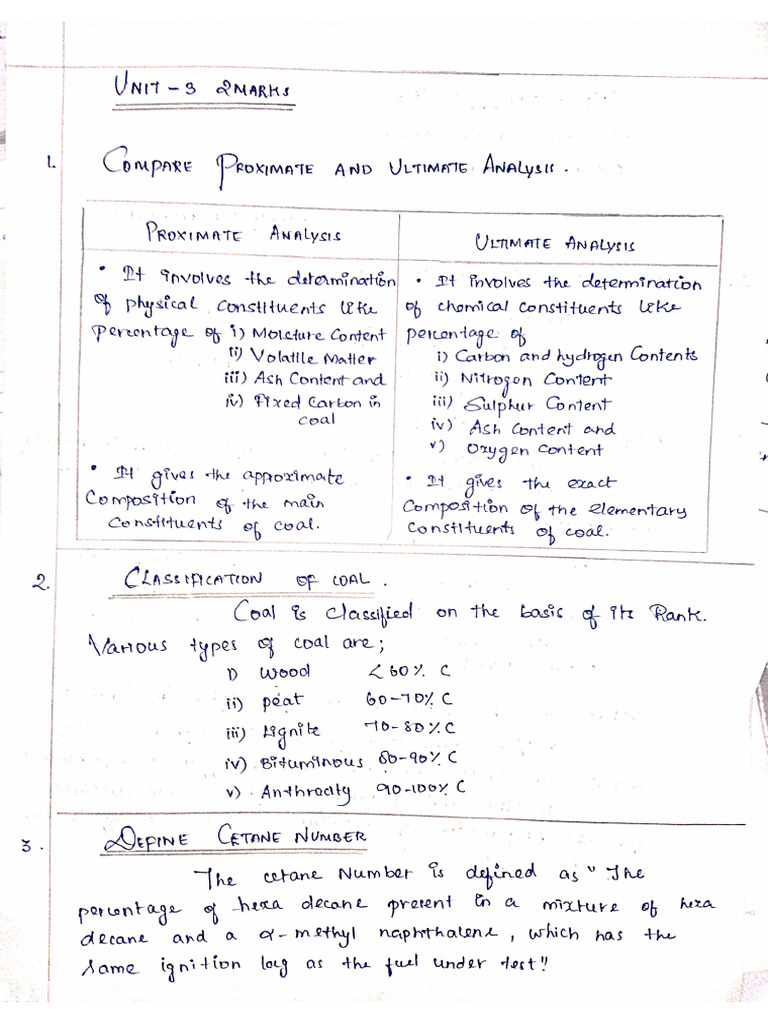 UNIT - 3 2MARKS
1. COMPARE PROXIMATE AND ULTIMATE ANALYSIS.
PROXIMATE ANALYSIS
• It involves the determination
of physical constituents like
percentage of i) Moisture Content
ii) Volatile Matter
iii) Ash Content and
iv) Fixed Carbon in
coal
• It gives the approximate
Composition of the main
Constituents of coal.
ULTIMATE ANALYSIS
• It involves the determination
of chemical constituents like
percentage of
i) Carbon and hydrogen Contents
ii) Nitrogen Content
iii) Sulphur Content
iv) Ash Content and
v) Oxygen Content
• It gives the exact
Composition of the elementary
Constituents of coal.
2. CLASSIFICATION OF COAL.
Coal is classified on the basis of its Rank.
Various types of coal are;
i) Wood <60% C
ii) peat 60-70% C
iii) Lignite 70-80% C
iv) Bituminous 80-90% C
v) Anthracity 90-100% C
3. DEFINE CETANE NUMBER
The cetane Number is defined as "The
percentage of hexa decane present in a mixture of hexa
decane and a α-methyl naphthalene, which has the
same ignition lag as the fuel under test"